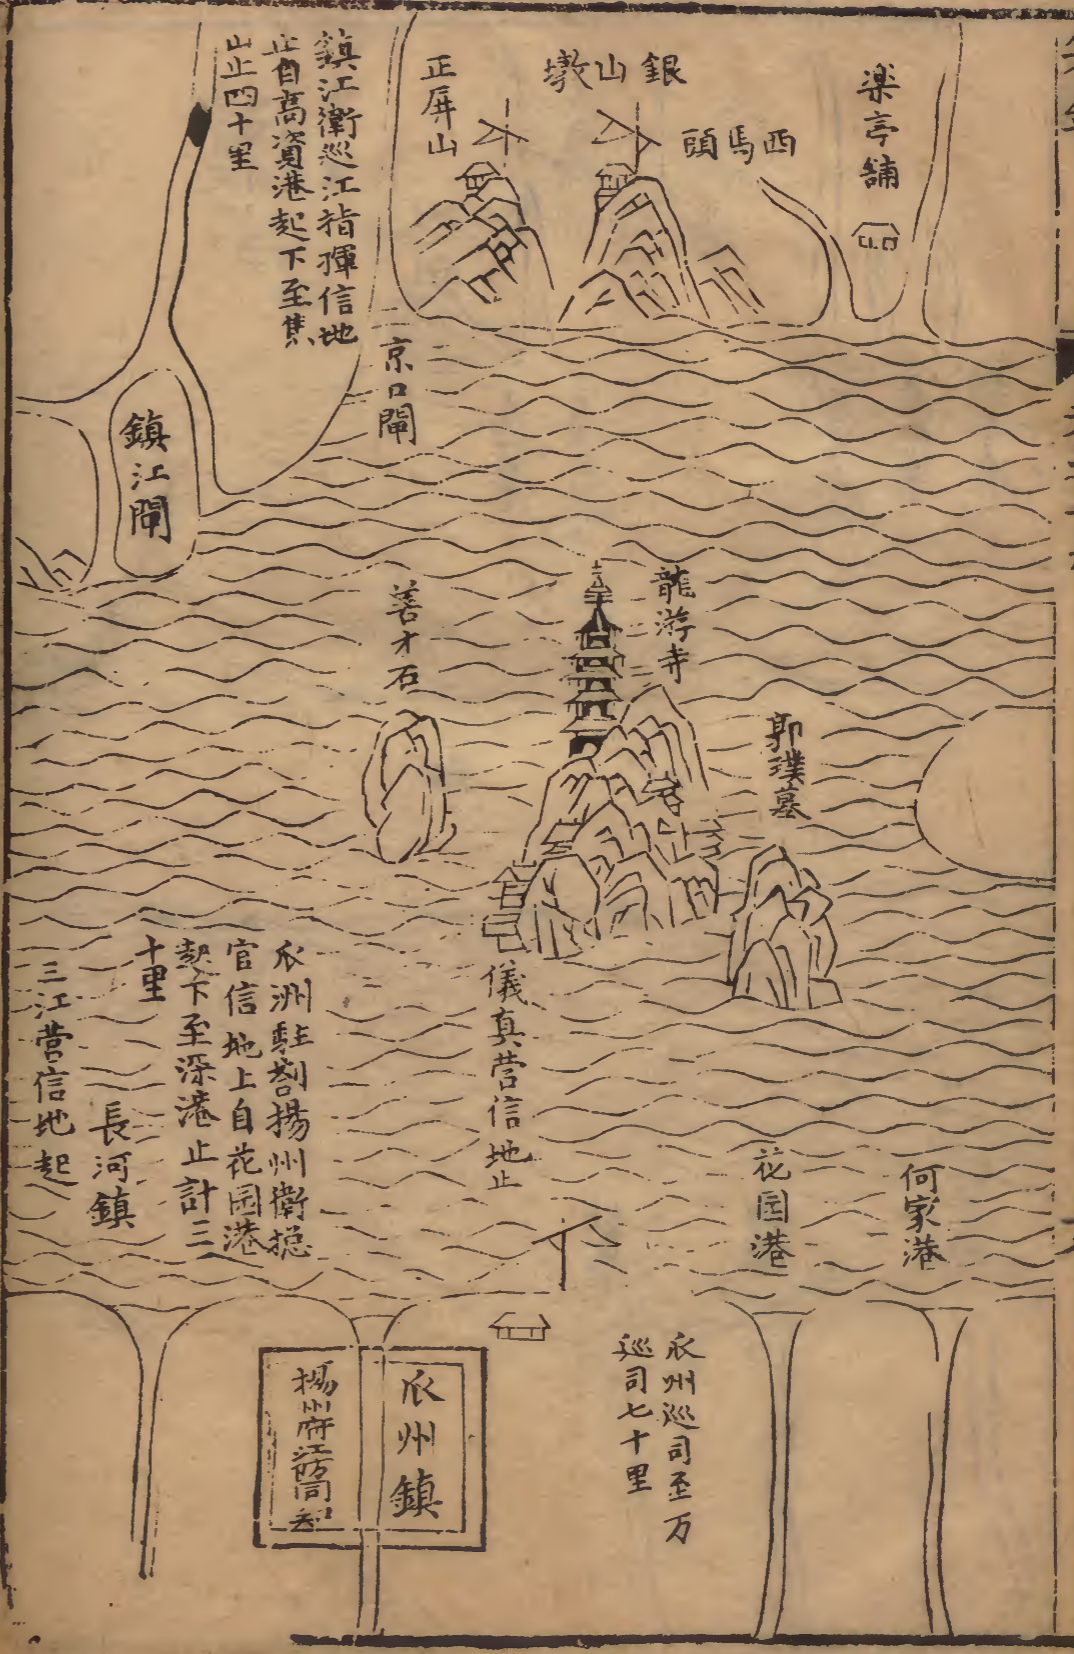 楽亭舖
西馬頭
銀山墩
正屏山
鎮江衛巡江指揮信地
止自高資港起下至焦
山止四十里
京口閘
鎮江閘
龍游寺
善才石
郭璞墓
儀真营信地止
瓜洲駐劄揚州衛揔
官信地上自花园港
起下至深港止計三
十里
三江营信地起
長河鎮
何家港
花园港
瓜州巡司至万
巡司七十里
瓜州鎮
揚州府江防同知